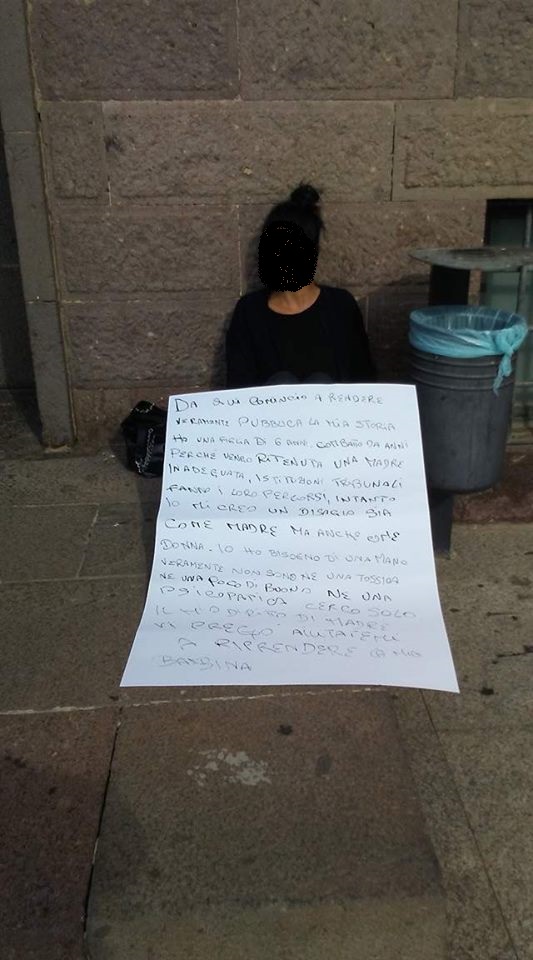 DA QUI COMINCIO A RENDERE
VERAMENTE PUBBLICA LA MIA STORIA
HO UNA FIGLIA DI 6 ANNI. COMBATTO DA ANNI
PERCHÉ VENGO RITENUTA UNA MADRE
INADEGUATA, ISTITUZIONI TRIBUNALI
FANNO I LORO PERCORSI, INTANTO
IO MI CREO UN DISAGIO SIA
COME MADRE MA ANCHE COME
DONNA. IO HO BISOGNO DI UNA MANO
VERAMENTE NON SONO NE UNA TOSSICA
NE UNA POCO DI BUONO NE UNA
PSICOPATICA CERCO SOLO
IL MIO DIRITTO DI MADRE
VI PREGO AIUTATEMI
A RIPRENDERE LA MIA
BAMBINA